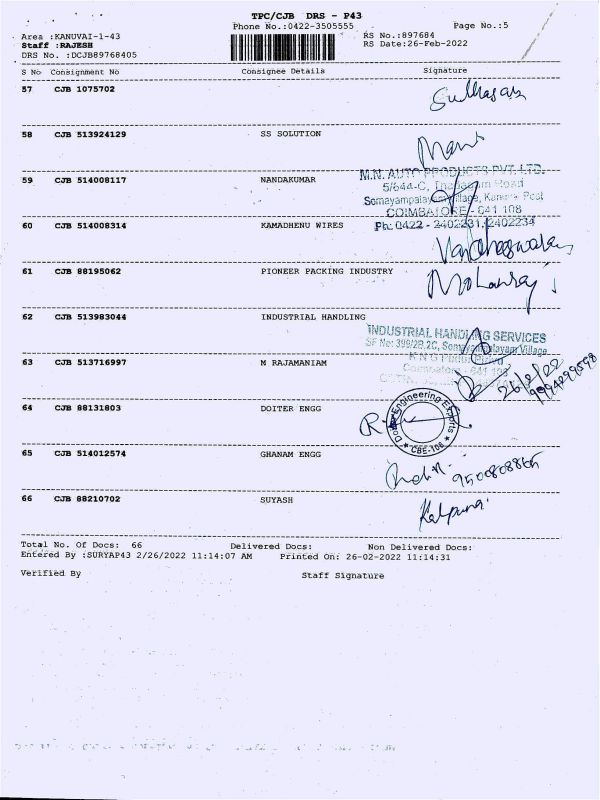 TPC/CJB DRS - P43
Phone No.:0422-3505555 Page No.:5
Area :KANUVAI-1-43 RS No.:897684
Staff :RAJESH RS Date:26-Feb-2022
DRS No. :DCJB89768405
S No Consignment No Consignee Details Signature
57 CJB 1075702
58 CJB 513924129 SS SOLUTION
Mani
M.N. AUTO PRODUCTS PVT. LTD.
59 CJB 514008117 NANDAKUMAR
5/644-C, Thadagam Road
Somayampalayam Village, Kanuvai Post
COIMBATORE - 641 108
60 CJB 514008314 KAMADHENU WIRES Ph: 0422 - 2402231, 2402234
61 CJB 88195062 PIONEER PACKING INDUSTRY
Mohanraj
62 CJB 513983044 INDUSTRIAL HANDLING
INDUSTRIAL HANDLING SERVICES
SF No: 399/2B,2C, Somayampalayam Village
Coimbatore - 641 108
63 CJB 513716997 M RAJAMANIAM
26/2/22
9994299598
64 CJB 88131803 DOITER ENGG
Engineering Exports
CBE-108
65 CJB 514012574 GHANAM ENGG
9500808865
66 CJB 88210702 SUYASH
Kalpana
Total No. Of Docs: 66 Delivered Docs: Non Delivered Docs:
Entered By :SURYAP43 2/26/2022 11:14:07 AM Printed On: 26-02-2022 11:14:31
Verified By Staff Signature